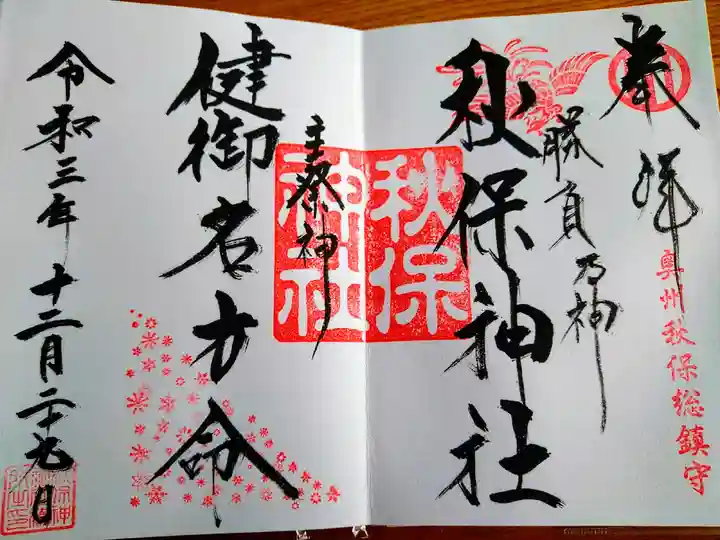 奉拝
奥州秋保総鎮守
勝負乃神
秋保神社
秋保
神社
主祭神
健御名方命
令和三年十二月二十九日